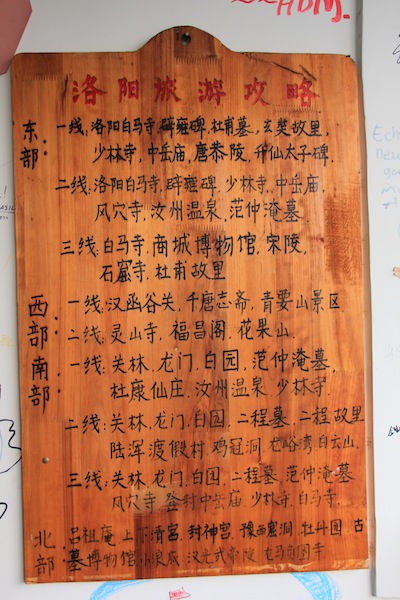 HDM.
洛阳旅游攻略
东部：一线：洛阳白马寺，辟雍碑，杜甫墓，玄奘故里，
少林寺，中岳庙，唐恭陵，升仙太子碑.
二线：洛阳白马寺，辟雍碑，少林寺，中岳庙，
风穴寺，汝州温泉，范仲淹墓
三线：白马寺，商城博物馆，宋陵，
石窟寺，杜甫故里
西部：一线：汉函谷关，千唐志斋，青要山景区
二线：灵山寺，福昌阁，花果山.
南部：一线：关林，龙门，白园，范仲淹墓，
杜康仙庄，汝州温泉，少林寺.
二线：关林，龙门，白园，二程墓，二程故里
陆浑渡假村，鸡冠洞，龙峪湾，白云山.
三线：关林，龙门，白园，二程墓，范仲淹墓
风穴寺，登封中岳庙，少林寺，白马寺.
北部：吕祖庵，上下清宫，封神宫，豫西窑洞，牡丹园，古
墓博物馆，小浪底，汉光武帝陵，龙马负图寺